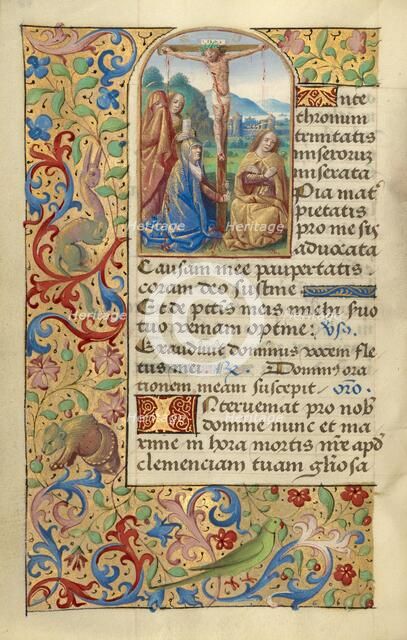 Ante
thronum
trinitatis
miseroruz
miserata
Pia mat
pietatis
pro me sis
advocata
Causam mee paupertatis
coram deo sustine
Et de pctis meis michi fuo
tuo veniam optine
Exaudivit dominus vocem fle
tus mei. Dominus ora
tionem meam suscepit oro.
Interveniat pro nob
domine nunc et ma
xime in hora mortis nre apd
clemenciam tuam gliosa
Heritage
Heritage
Heritage
Heritage